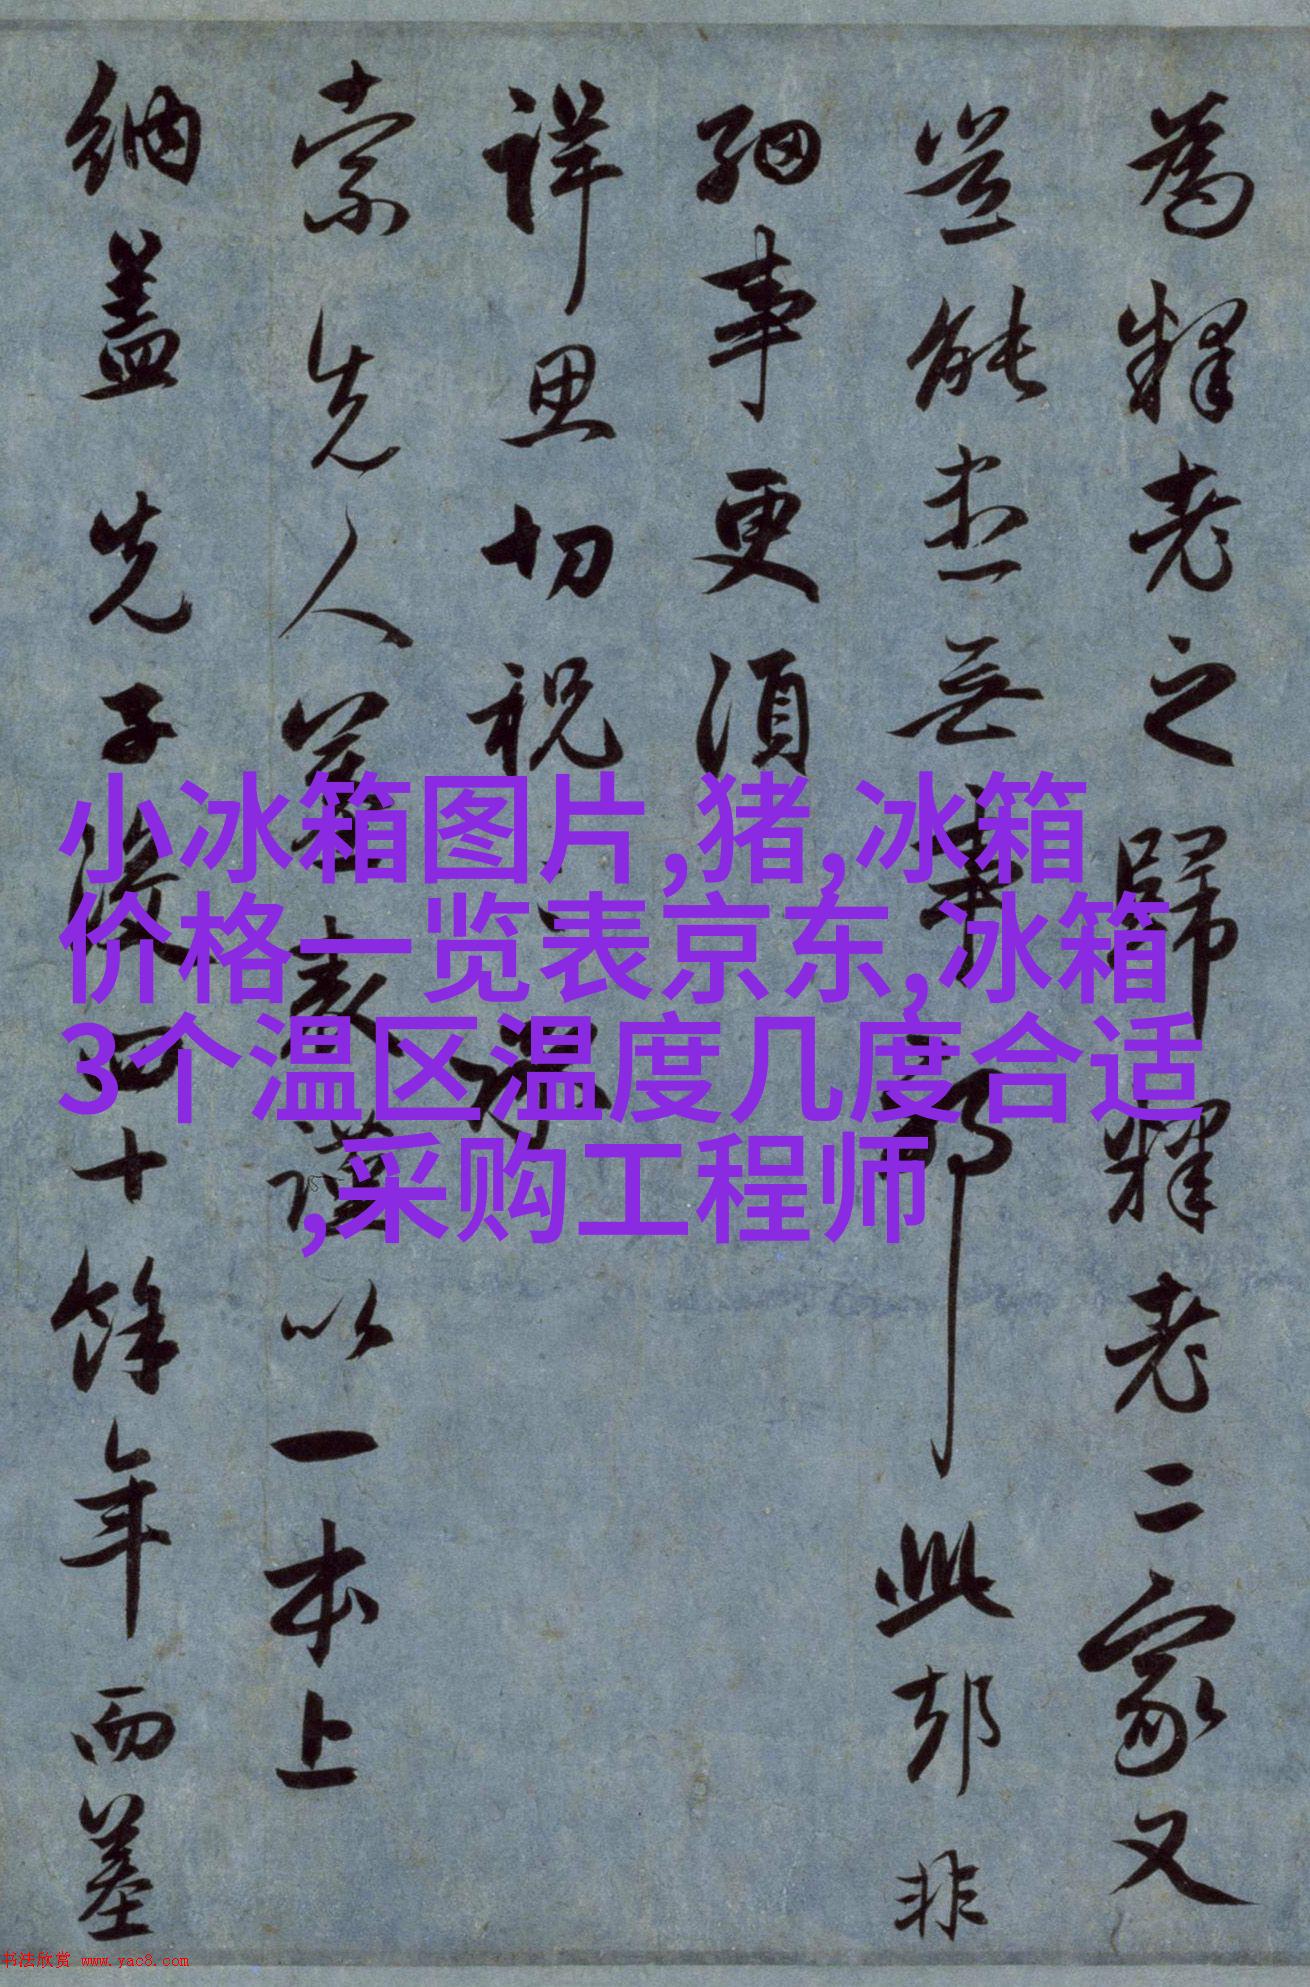 為釋老之歸釋老二家又
豈能无事耶此却非
細事更須
詳思切祝
索先人墓表謹以一本上
納蓋先子歿四十餘年而墓
小冰箱图片,猪,冰箱
价格一览表京东,冰箱
3个温区温度几度合适
,采购工程师
书法欣赏 www.yac8.com